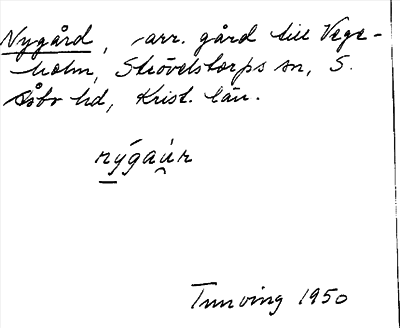 Nygård, arr. gård till Vege-
holm, Strövelstorps sn, S.
Åsbo hd, Krist. län.
nýgaú̯r
Tunving 1950